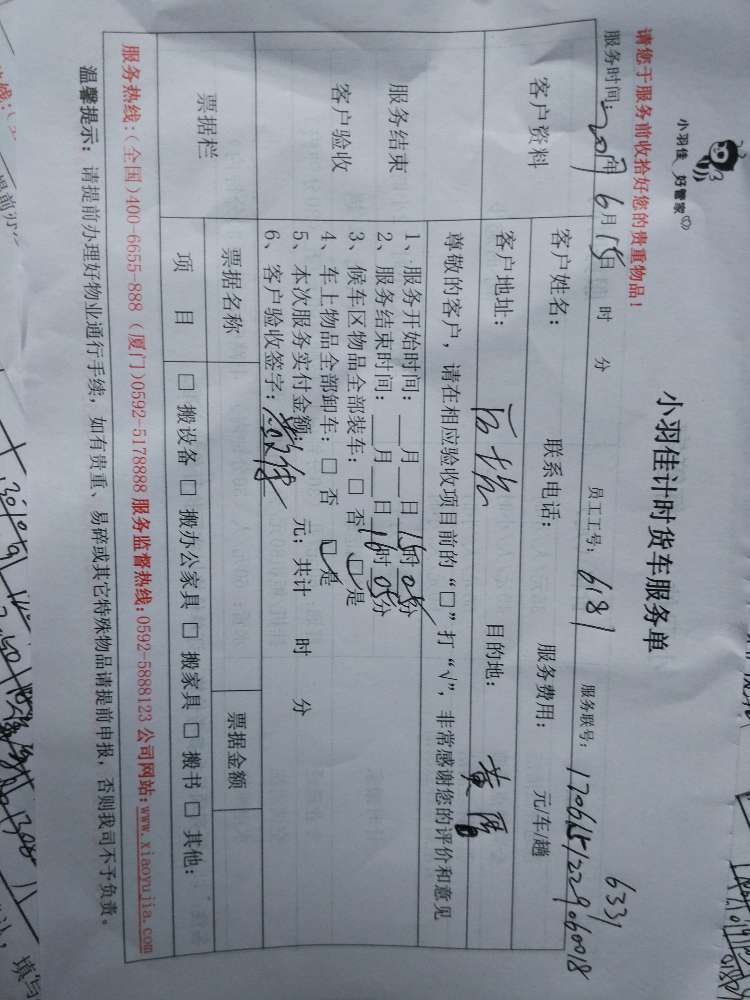 小羽佳 好管家
小羽佳计时货车服务单
请您于服务前收拾好您的贵重物品!
6331
服务时间: 2017年 6月 15日 时 分 员工工号: 6181 服务联号: 1706151229060018
客户资料
客户姓名: 联系电话: 服务费用: 元/车/趟
客户地址: 目的地: 黄厝
尊敬的客户, 请在相应验收项目前的“□”打“√”, 非常感谢您的评价和意见
服务结束
客户验收
1、服务开始时间: __月__日 15时 05分
2、服务结束时间: __月__日 16时 05分
3、候车区物品全部装车: □ 否 □ 是
4、车上物品全部卸车: □ 否 □ 是
5、本次服务实付金额: 元; 共计 时 分
6、客户验收签字:
票据栏
票据名称 票据金额
项 目 □ 搬设备 □ 搬办公家具 □ 搬家具 □ 搬书 □ 其他:
服务热线:(全国)400-6655-888 (厦门)0592-5178888 服务监督热线:0592-5888123 公司网站:www.xiaoyujia.com
温馨提示: 请提前办理好物业通行手续, 如有贵重、易碎或其它特殊物品请提前申报, 否则我司不予负责。
填写